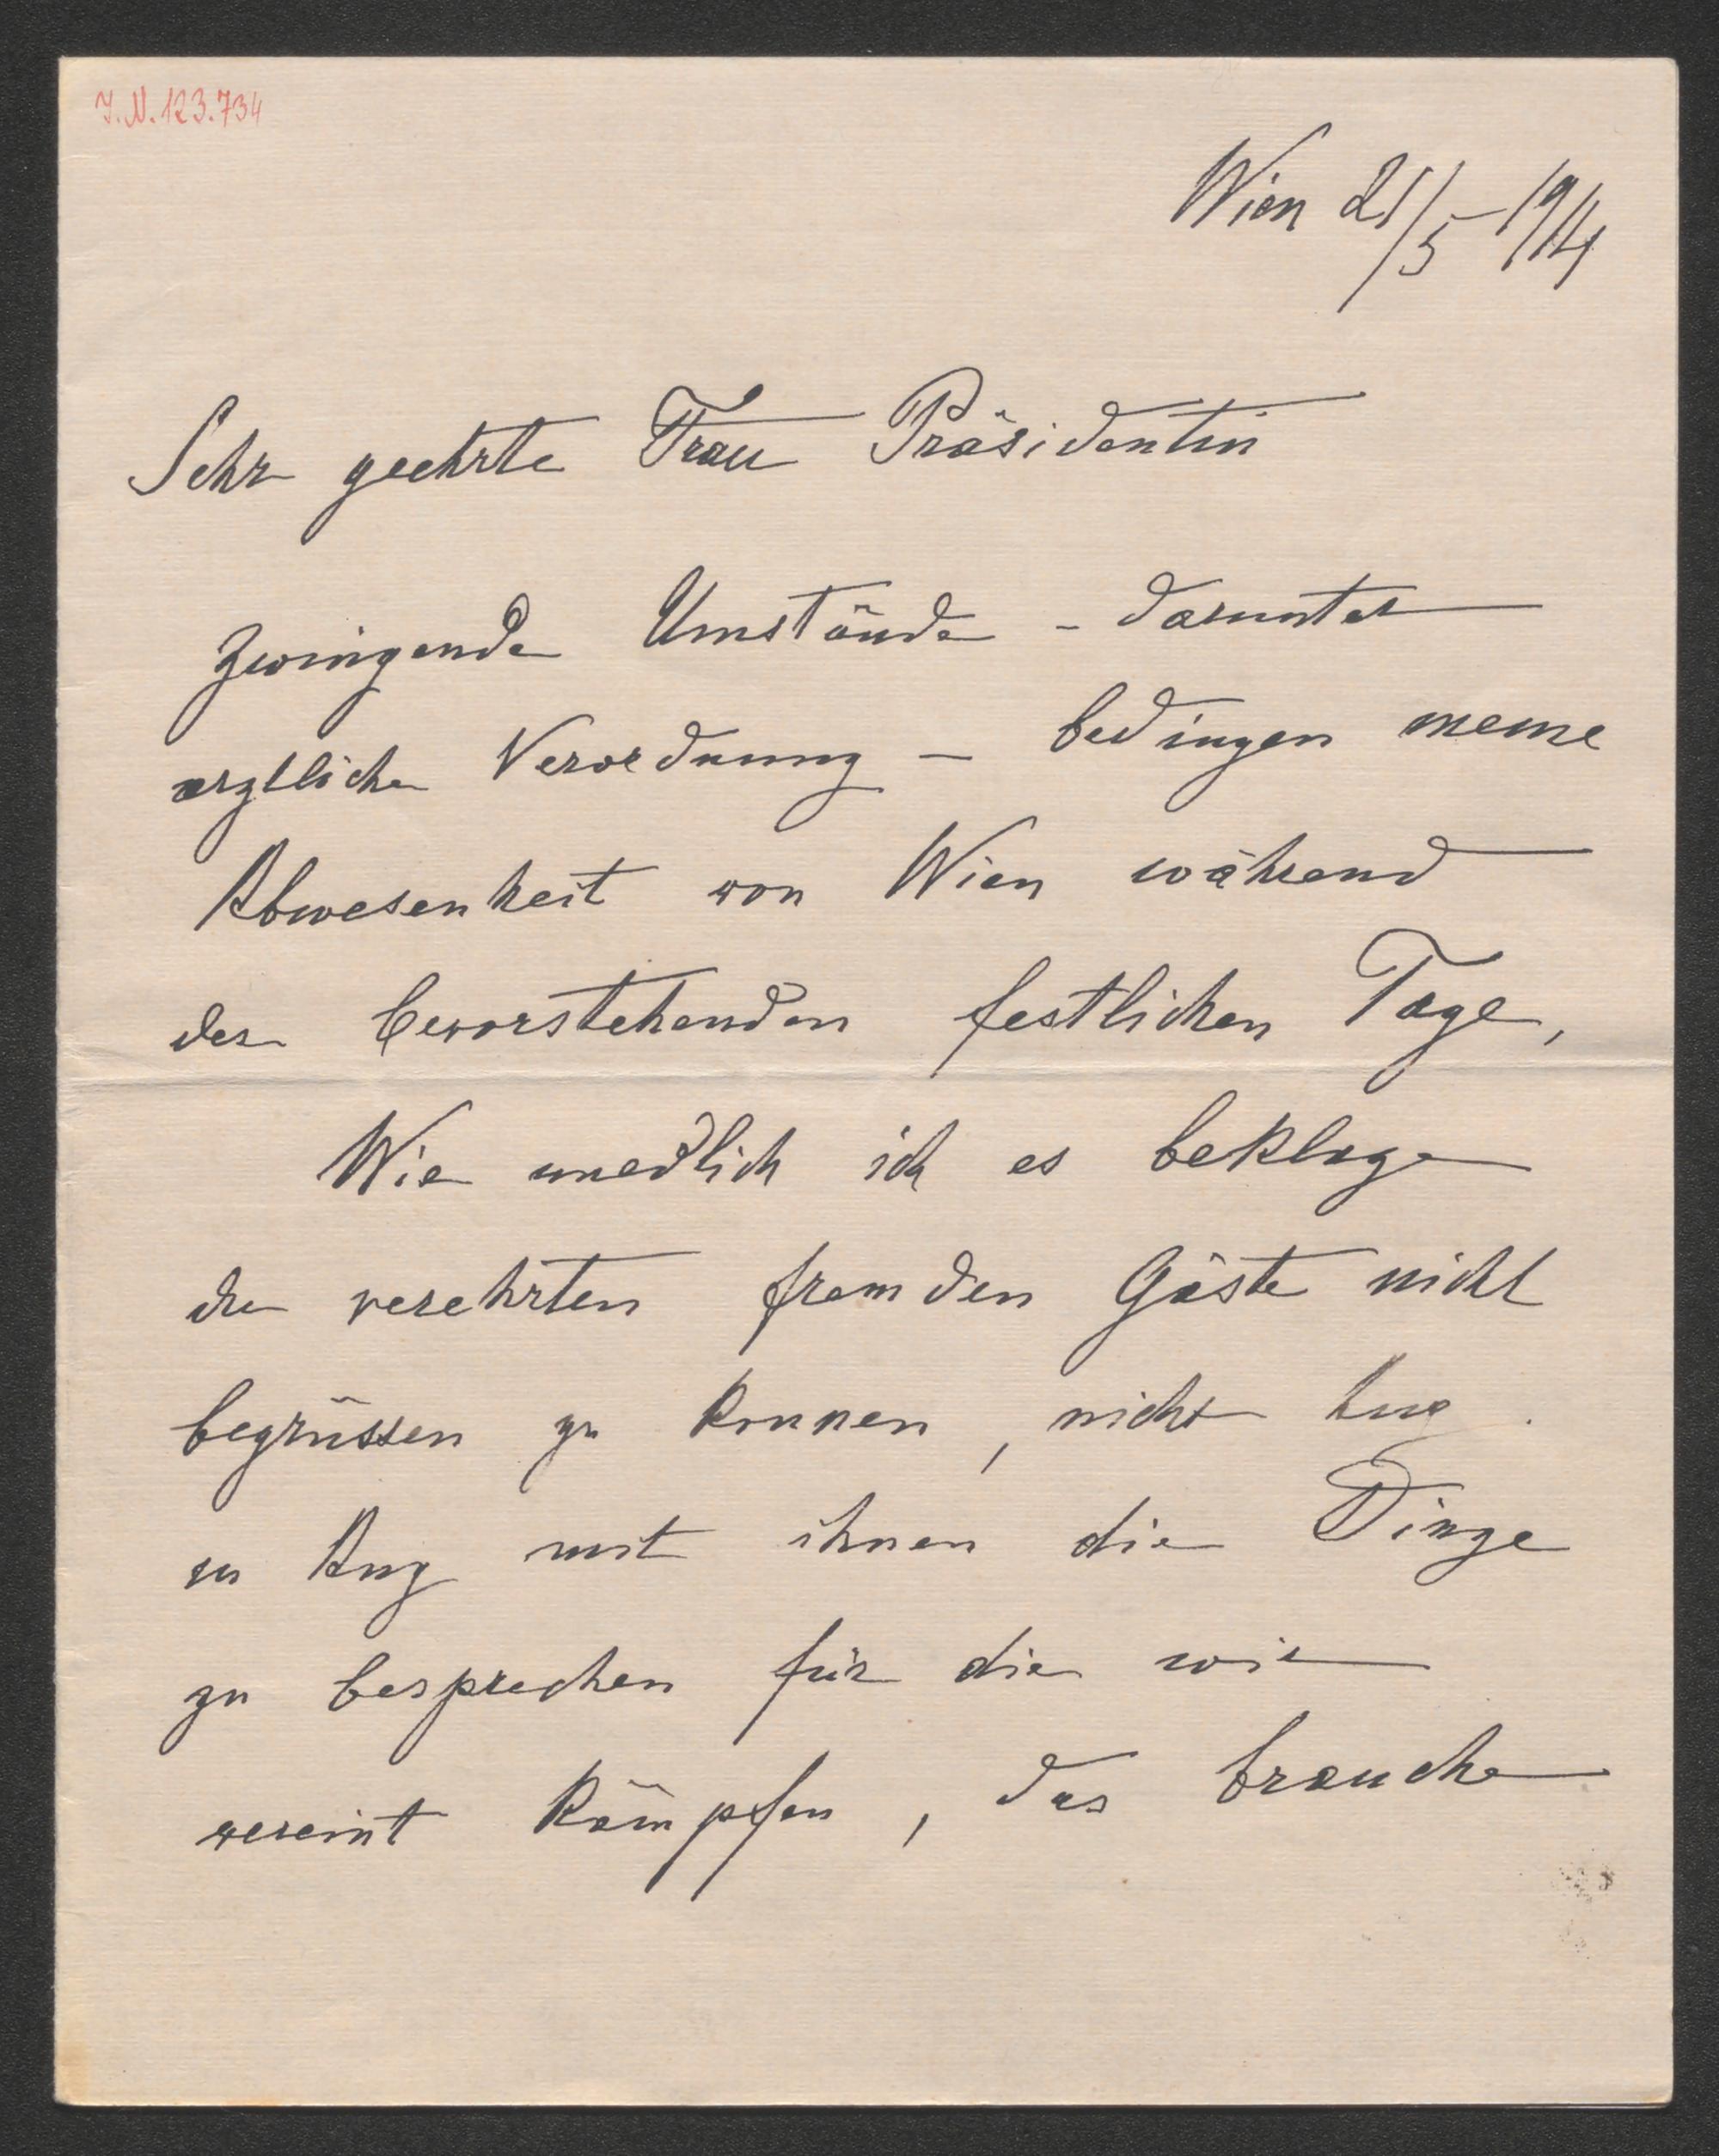 J.N. 123.734
Wien 21/5 - 1914
Sehr geehrte Frau Präsidentin
Zwingende Umstände – darunter
arztliche Verordnung – bedingen meine
Abwesenheit von Wien während
der bevorstehenden festlichen Tage,
Wie unedlich ich es beklage
die verehrten fremden Gäste nicht
begrüssen zu konnen, nicht Aug
in Aug mit ihnen die Dinge
zu besprechen für die wir
vereint kämpfen, das brauche